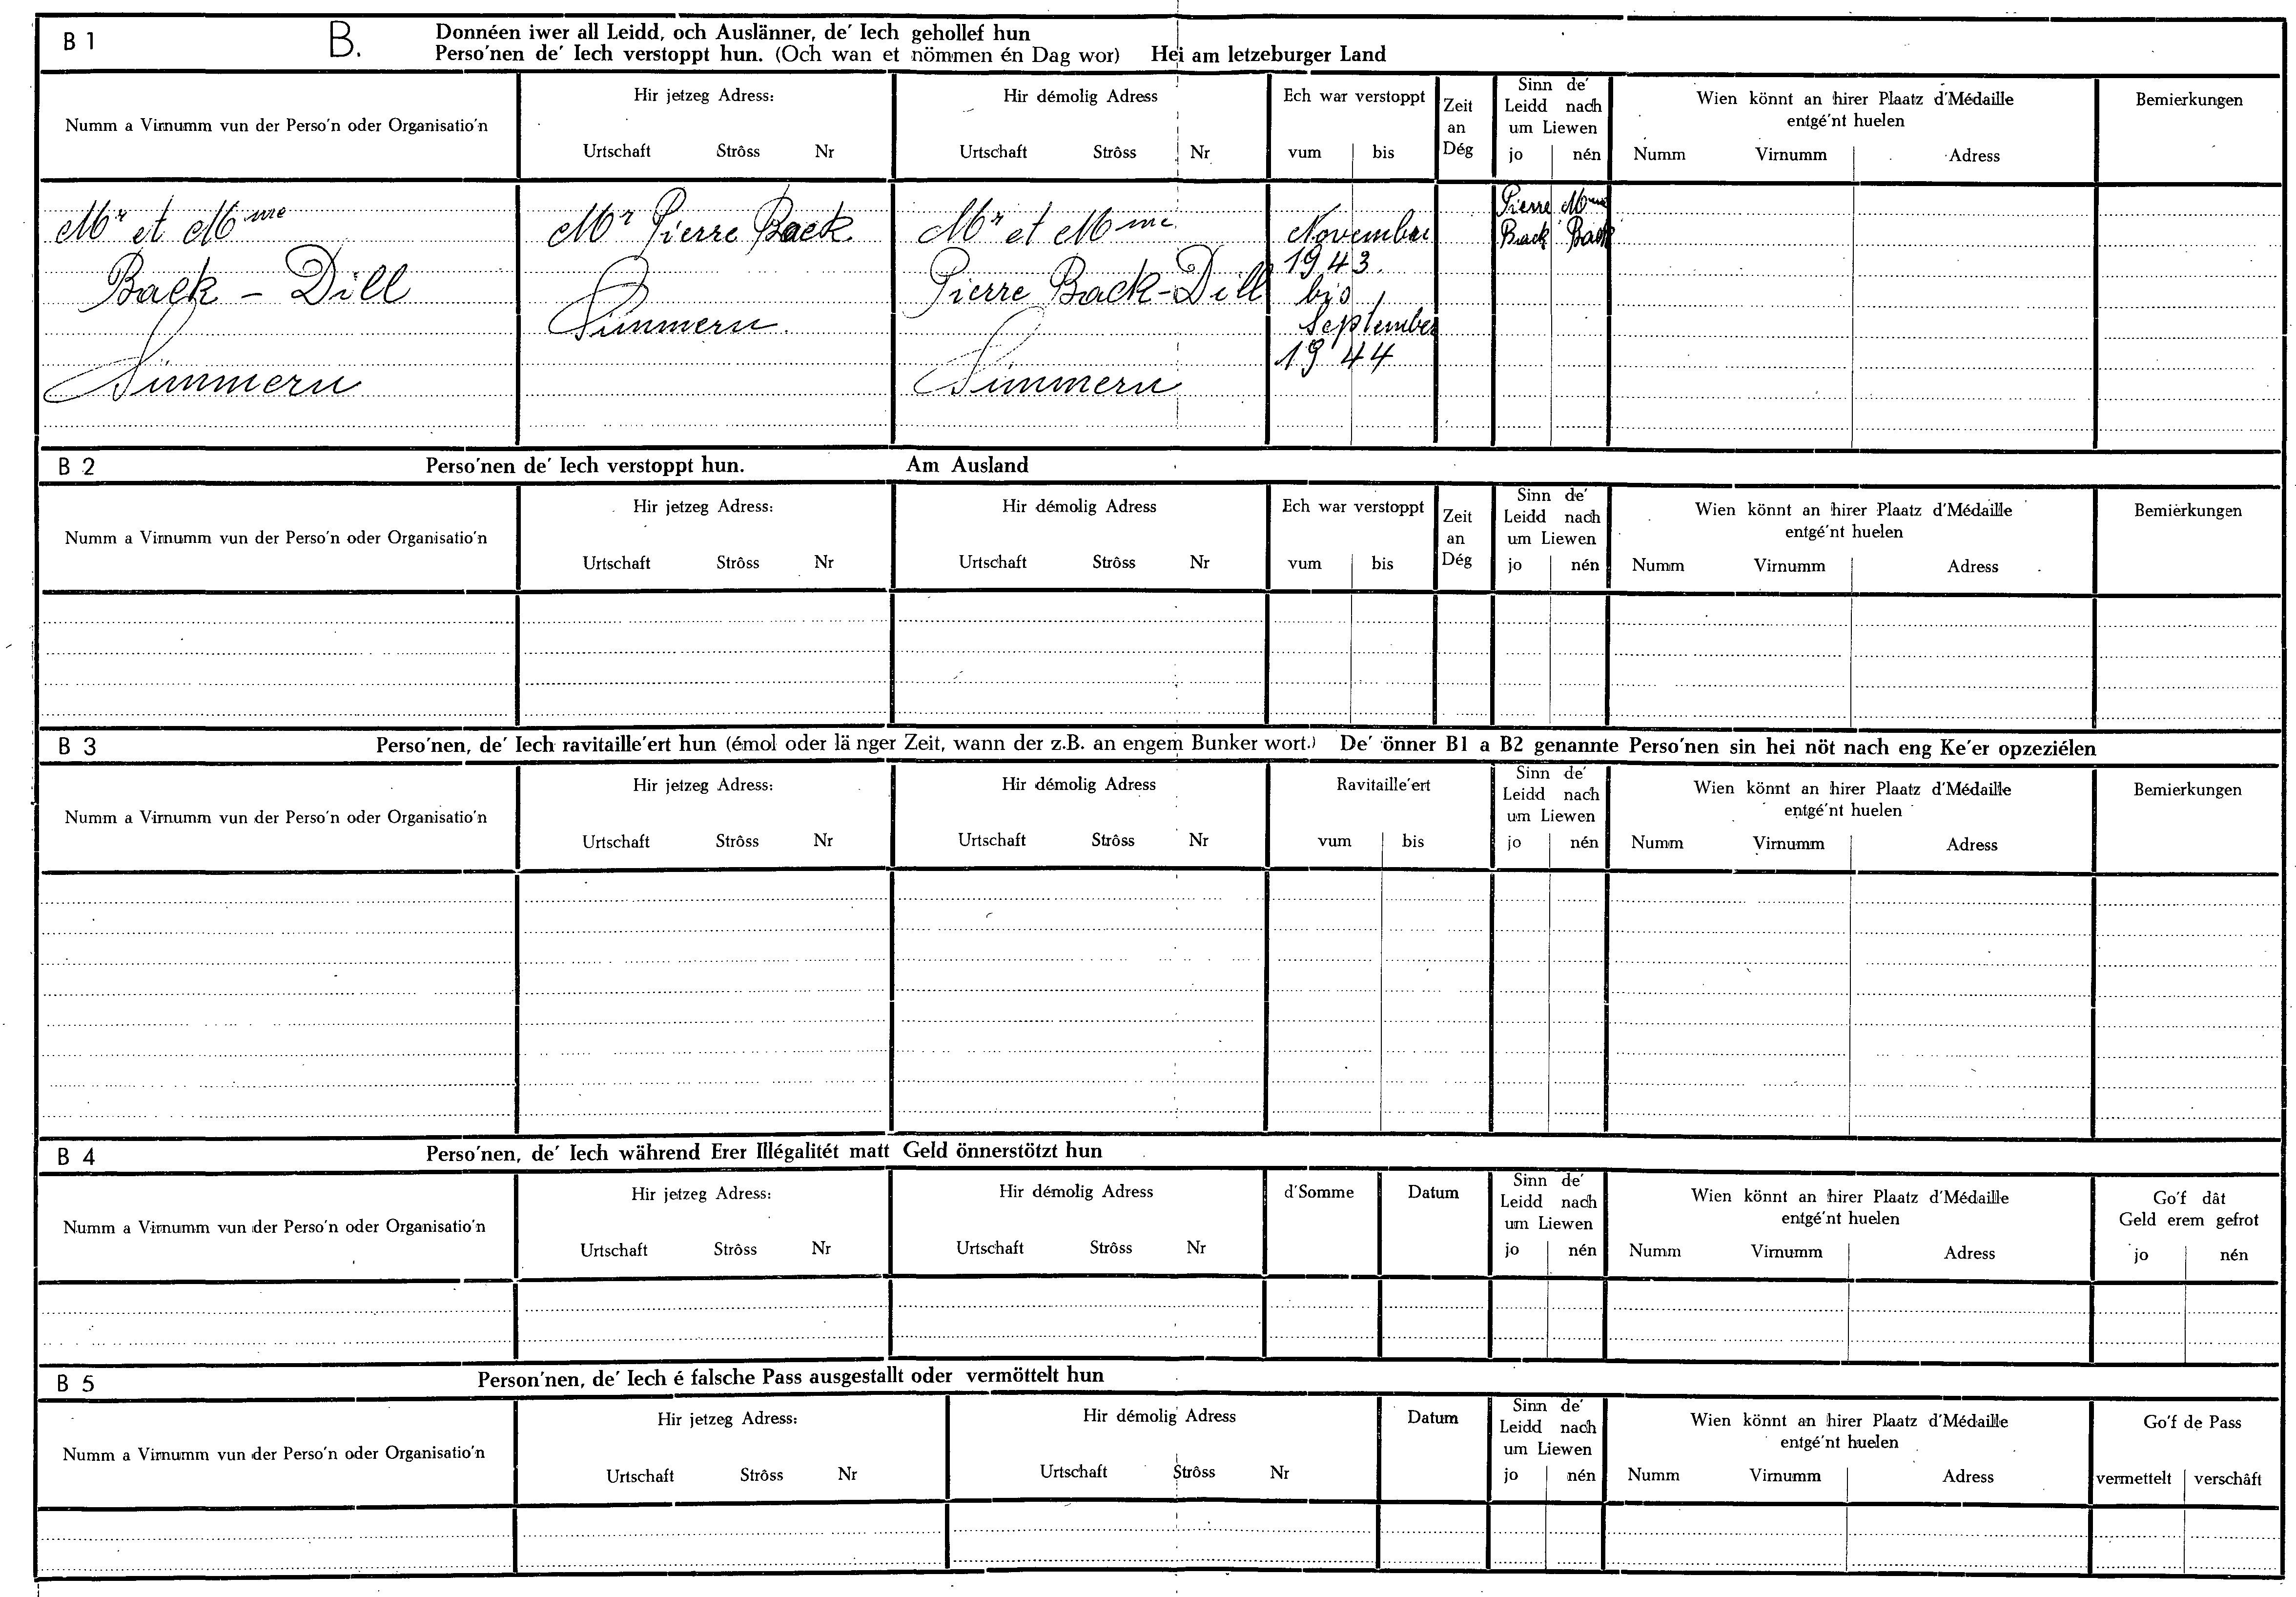 B 1
B.
Donnéen iwer all Leidd, och Auslänner, de' Iech gehollef hun
Perso'nen de' Iech verstoppt hun. (Och wan et nömmen én Dag wor) Hei am letzeburger Land
Numm a Virnumm vun der Perso'n oder Organisatio'n
Hir jetzeg Adress:
Urtschaft Strôss Nr
Hir démolig Adress
Urtschaft Strôss Nr
Ech war verstoppt
vum bis
Zeit
an
Dég
Sinn de'
Leidd nach
um Liewen
jo nén
Wien könnt an hirer Plaatz d'Médaille
entgé'nt huelen
Numm Virnumm Adress
Bemierkungen
Mr et Mme
Back - Dill
Simmern
Mr Pierre Back
Simmern.
Mr et Mme
Pierre Back-Dill
Simmern
November
1943.
bis
September
1944
Pierre
Back
Mme
Back
B 2
Perso'nen de' Iech verstoppt hun. Am Ausland
Numm a Virnumm vun der Perso'n oder Organisatio'n
Hir jetzeg Adress:
Urtschaft Strôss Nr
Hir démolig Adress
Urtschaft Strôss Nr
Ech war verstoppt
vum bis
Zeit
an
Dég
Sinn de'
Leidd nach
um Liewen
jo nén
Wien könnt an hirer Plaatz d'Médaille
entgé'nt huelen
Numm Virnumm Adress
Bemierkungen
B 3
Perso'nen, de' Iech ravitaille'ert hun (émol oder länger Zeit, wann der z.B. an engem Bunker wort.) De' önner B1 a B2 genannte Perso'nen sin hei nöt nach eng Ke'er opzeziélen
Numm a Virnumm vun der Perso'n oder Organisatio'n
Hir jetzeg Adress:
Urtschaft Strôss Nr
Hir démolig Adress
Urtschaft Strôss Nr
Ravitaille'ert
vum bis
Sinn de'
Leidd nach
um Liewen
jo nén
Wien könnt an hirer Plaatz d'Médaille
entgé'nt huelen
Numm Virnumm Adress
Bemierkungen
B 4
Perso'nen, de' Iech während Erer Illégalitét matt Geld önnerstötzt hun
Numm a Virnumm vun der Perso'n oder Organisatio'n
Hir jetzeg Adress:
Urtschaft Strôss Nr
Hir démolig Adress
Urtschaft Strôss Nr
d'Somme
Datum
Sinn de'
Leidd nach
um Liewen
jo nén
Wien könnt an hirer Plaatz d'Médaille
entgé'nt huelen
Numm Virnumm Adress
Go'f dât
Geld erem gefrot
jo nén
B 5
Person'nen, de' Iech é falsche Pass ausgestallt oder vermöttelt hun
Numm a Virnumm vun der Perso'n oder Organisatio'n
Hir jetzeg Adress:
Urtschaft Strôss Nr
Hir démolig Adress
Urtschaft Strôss Nr
Datum
Sinn de'
Leidd nach
um Liewen
jo nén
Wien könnt an hirer Plaatz d'Médaille
entgé'nt huelen
Numm Virnumm Adress
Go'f de Pass
vermettelt verschâft